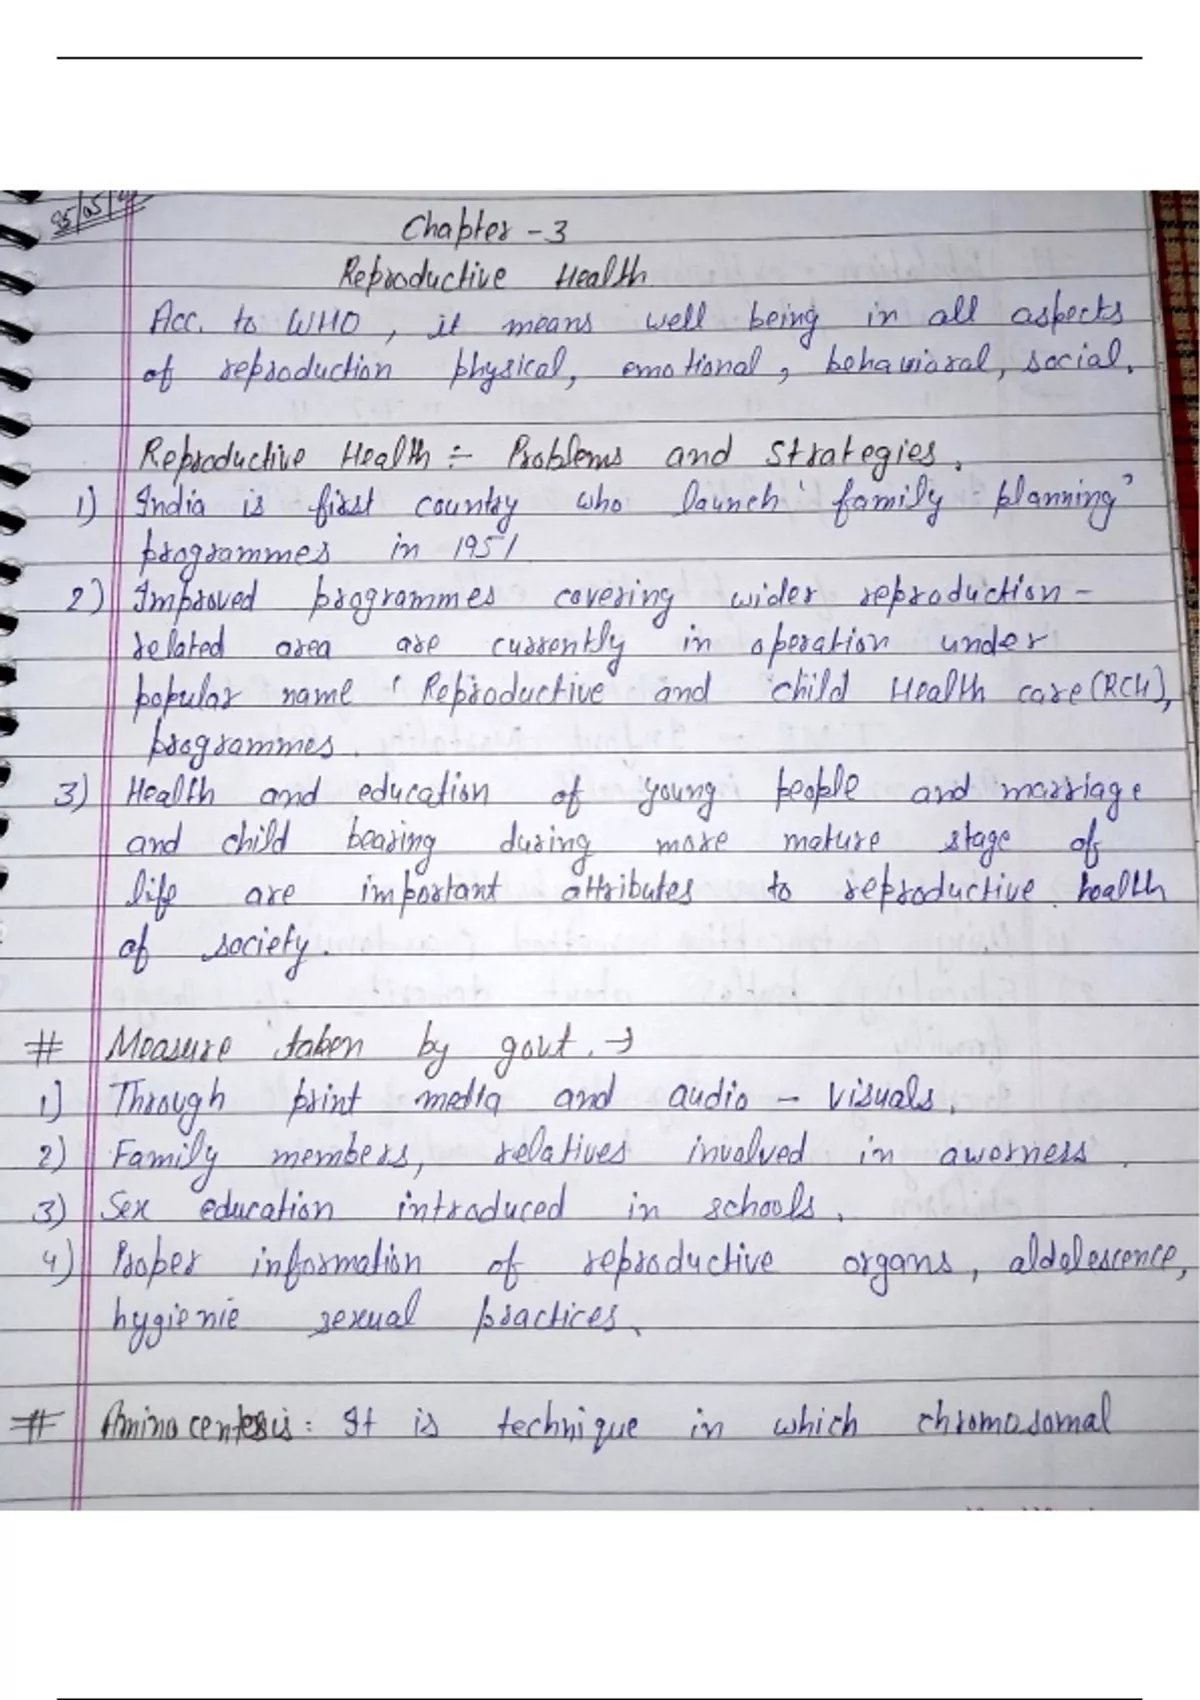 Chapter - 3
Reproductive Health
Acc. to WHO, it means well being in all aspects
of reproduction physical, emotional, behavioral, social.
Reproductive Health :- Problems and Strategies.
1) India is first country who launch 'family planning'
programmes in 1951
2) Improved programmes covering wider reproduction -
related area are currently in operation under
popular name ' Reproductive and child Health care (RCH),
programmes.
3) Health and education of young people and marriage
and child bearing during more mature stage of
life are important attributes to reproductive health
of society.
# Measure taken by govt. →
1) Through print media and audio - visuals.
2) Family members, relatives involved in awerness.
3) Sex education introduced in schools.
4) Proper information of reproductive organs, aldolescence,
hygienie sexual practices.
# Aminocentesis : It is technique in which chromosomal